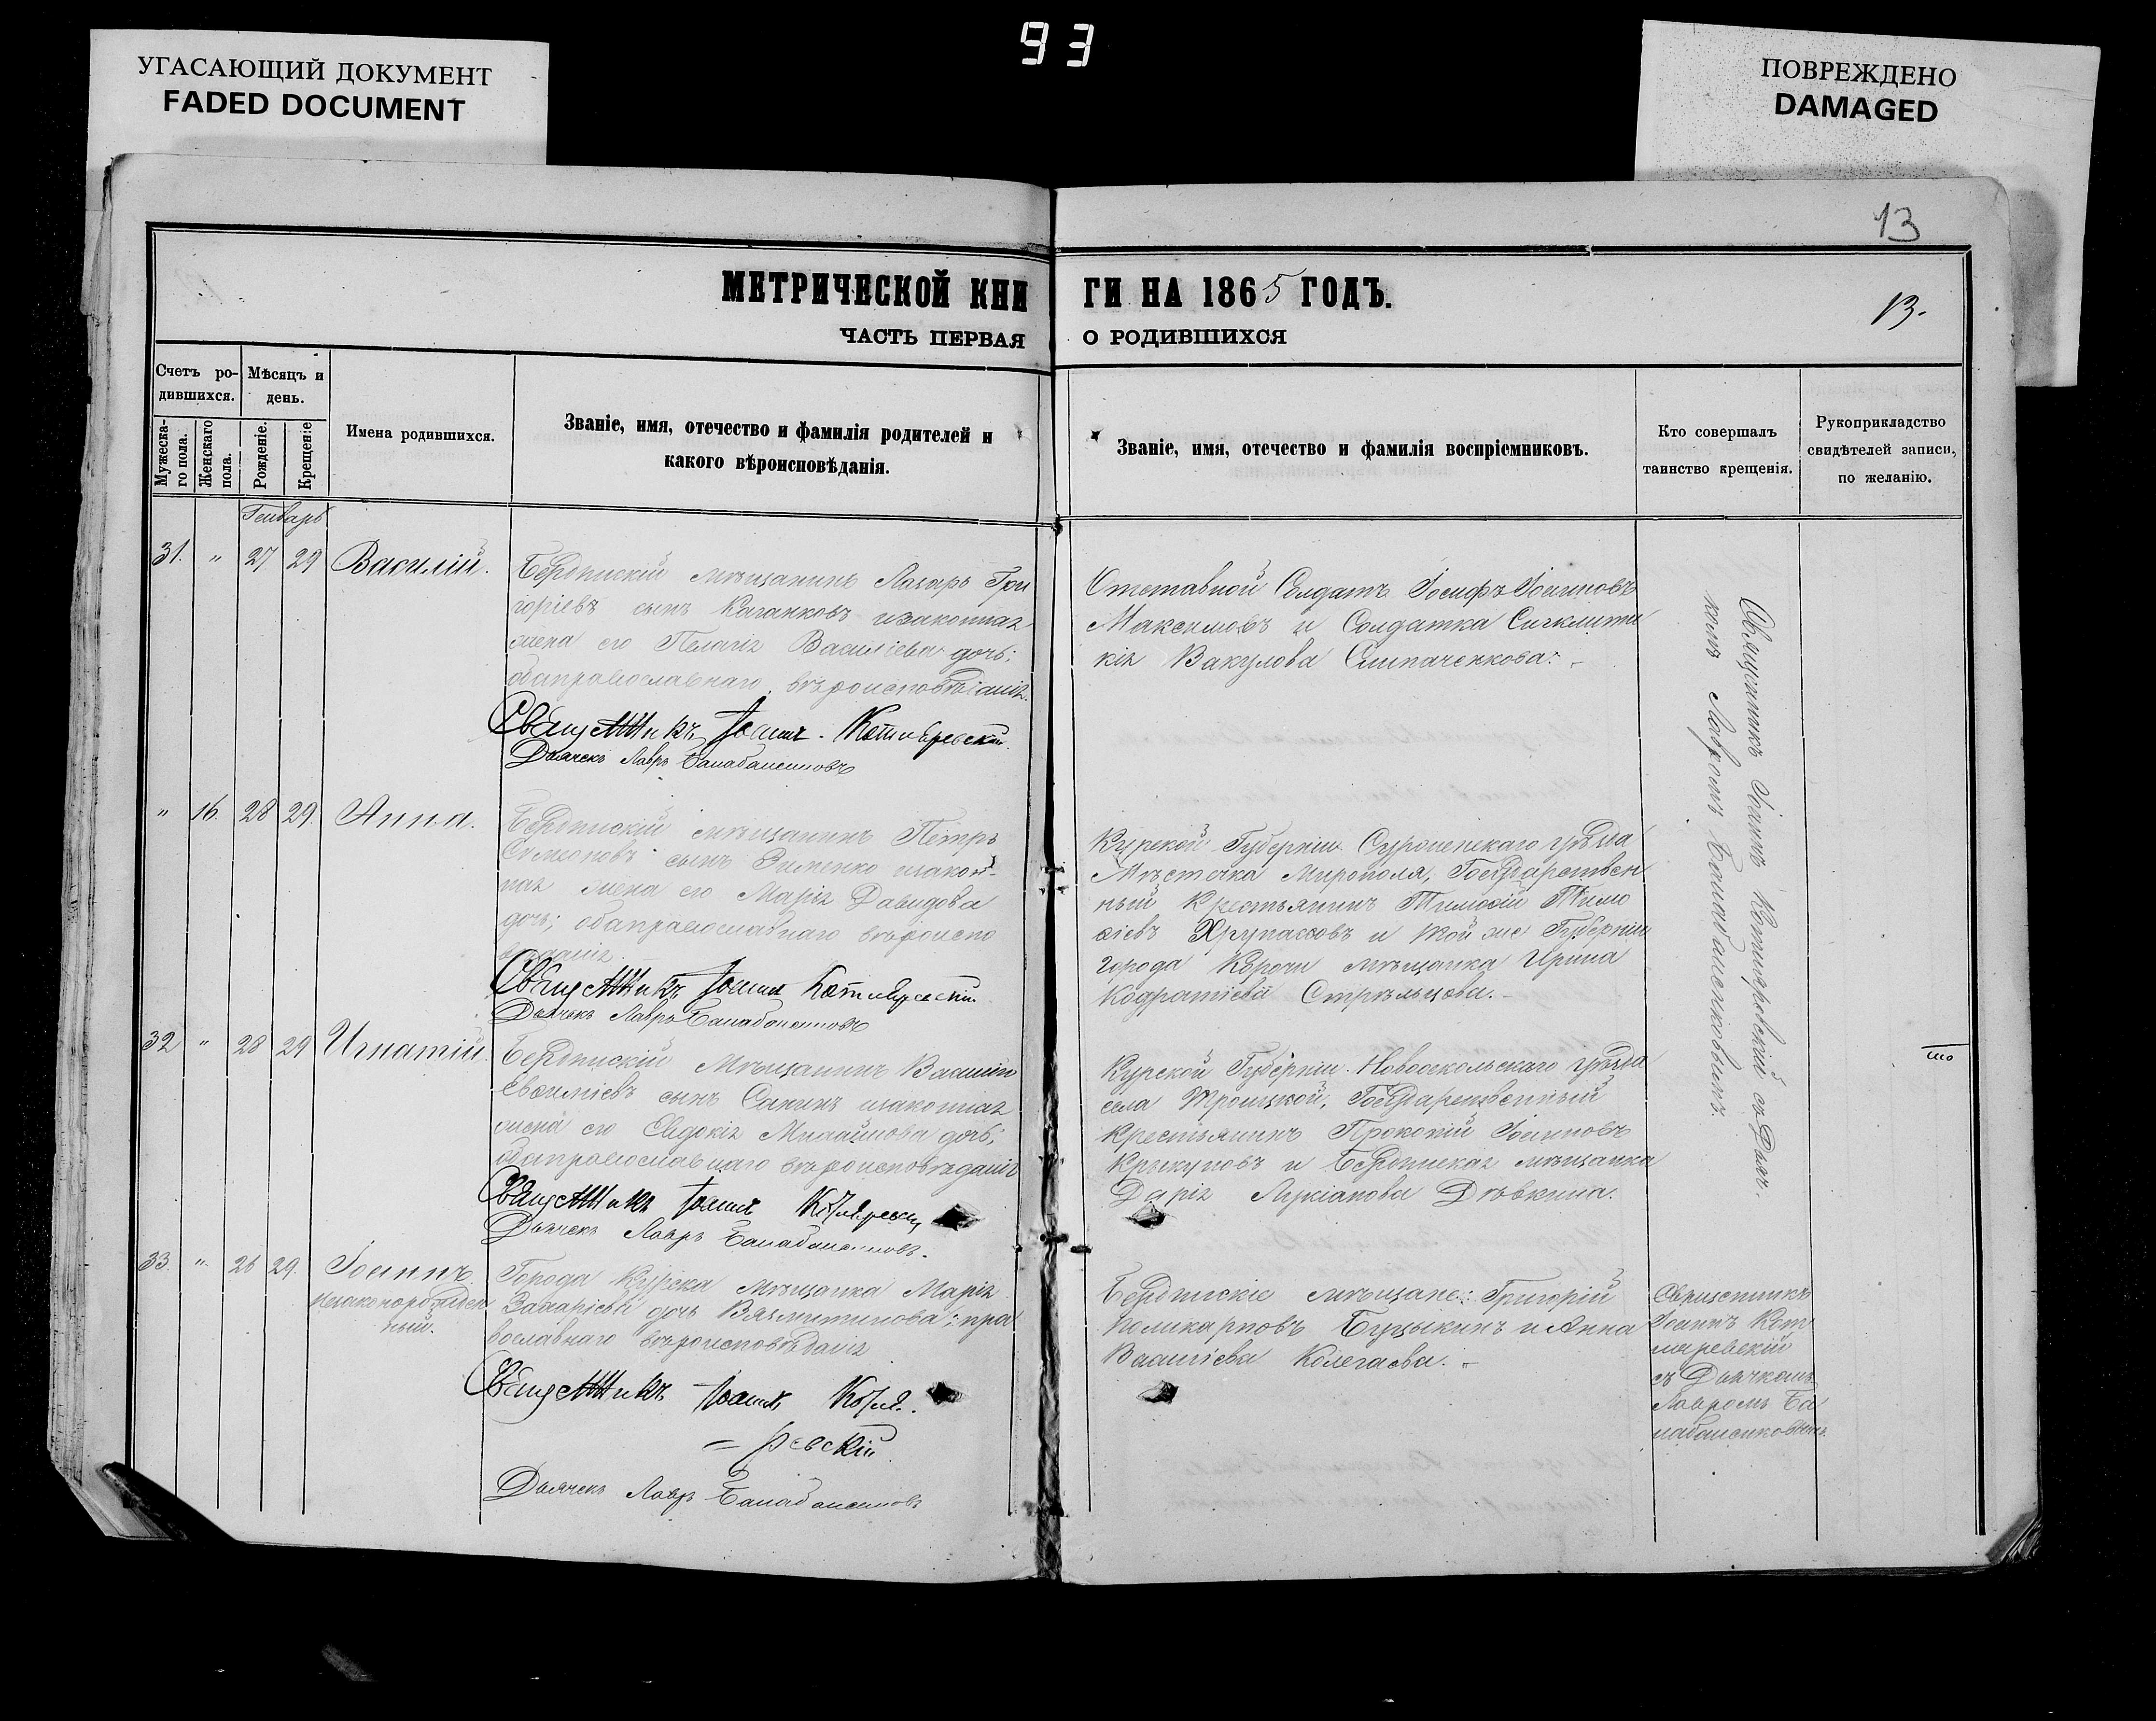 93
УГАСАЮЩИЙ ДОКУМЕНТ
FADED DOCUMENT
ПОВРЕЖДЕНО
DAMAGED
13
МЕТРИЧЕСКОЙ КНИ ГИ НА 1865 ГОДЪ.
13.
ЧАСТЬ ПЕРВАЯ О РОДИВШИХСЯ
Счетъ ро-
дившихся.
Мѣсяцъ и
день.
Мужеска-
го пола.
Женскаго
пола.
Рожденіе.
Крещеніе
Имена родившихся.
Званіе, имя, отечество и фамилія родителей и
какого вѣроисповѣданія.
Званіе, имя, отечество и фамилія воспріемниковъ.
Кто совершалъ
таинство крещенія.
Рукоприкладство
свидѣтелей записи,
по желанію.
Генварь
31. " 27 29 Василій.
Бердянскій мѣщанинъ Лазарь Гри
горіевъ сынъ изаконная
жена его Пелагія Василіева дочь;
обаправославнаго вѣроисповѣданія.
Священникъ Іоаннъ Котляревскій.
Дьячекъ Лавръ Балабаненковъ
Отставной Солдатъ Іосифъ Іоанновъ
Максимовъ и Солдатка Сигклити
кія Вакулова Слипаченкова.
Священникъ Іоаннъ Котляревскій съ Дьяч.
комъ Лавромъ Балабаненковымъ
" 16. 28 29. Анна.
Бердянскій мѣщанинъ Петръ
Симеоновъ сынъ Зименко изакон-
ная жена его Марія Давидова
дочь; обаправославнаго вѣроиспо
вѣданія
Священникъ Іоаннъ Котляревскій.
Дьячекъ Лавръ Балабаненковъ
Курской Губерніи Суджанскаго уѣзда
Мѣстечка Мирополя, Государствен
ный Крестьянинъ Тимофій Тимо
ѳіевъ и той же Губерніи
города Корочи мѣщанка Ирина
Кодратіева Стрѣльцова.
32 " 28 29 Игнатій.
Бердянскій Мѣщанинъ Василій
сынъ Санинъ изаконная
жена его Евдокія Михайлова дочь;
обаправославнаго вѣроисповѣданія
Священникъ Іоаннъ Котляревскій
Дьячекъ Лавръ Балабаненковъ.
Курской Губерніи Новооскольскаго уѣзда
села Троицкой, Государственный
Крестьянинъ Прокопій Іоанновъ
Крыкуновъ и Бердянская мѣщанка
Дарія Лукіанова Дѣвкина.
33. " 26 29. Іоаннъ
незаконорожден
ный.
Города Курска мѣщанка Марія
Захаріева дочь Вязмитинова; пра
вославнаго вѣроисповѣданія
Священникъ Іоаннъ Котля.
= ревскій
Дьячекъ Лавръ Балабаненковъ
Бердянскіе мѣщане: Григорій
Поликарповъ Буцыкинъ и Анна
Василіева Колегаева.
Священникъ
Іоаннъ Кот
ляревскій
съ Дьячкомъ
Лавромъ Ба
лабаненковымъ